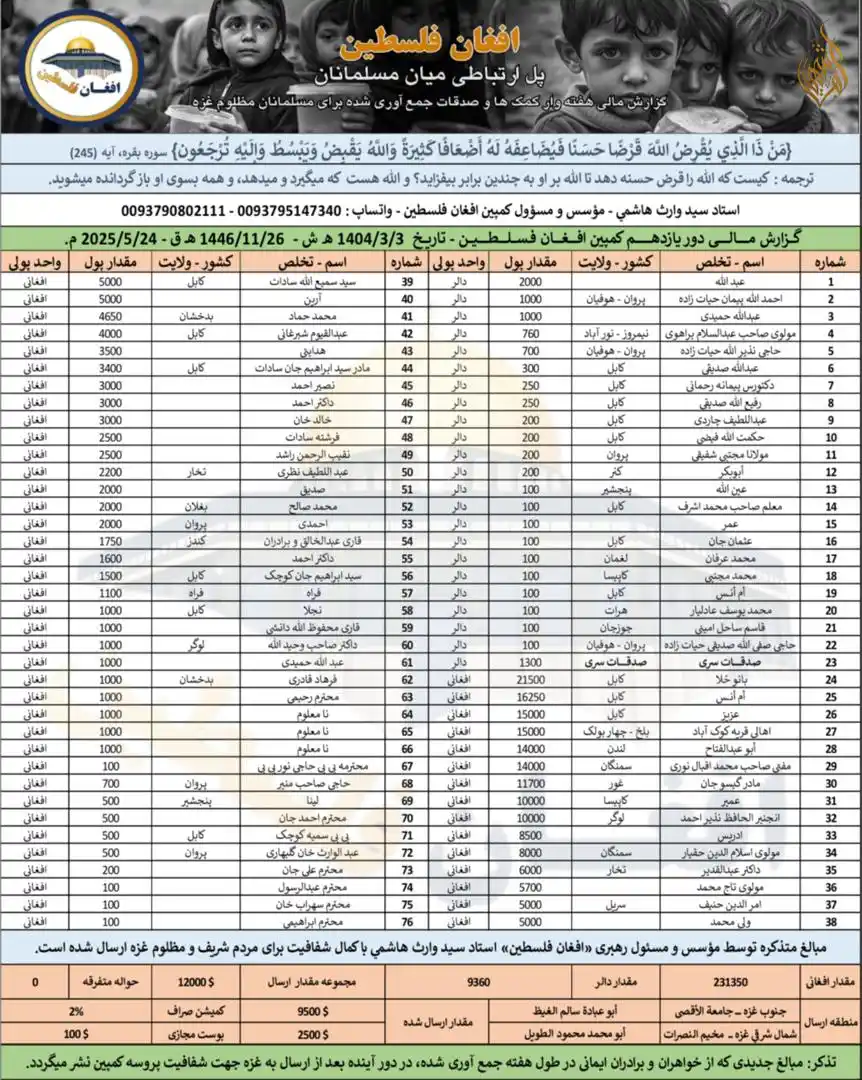 افغان فلسطین
پل ارتباطی میان مسلمانان
گزارش مالی هفته وار کمک ها و صدقات جمع آوری شده برای مسلمانان مظلوم غزه
افغان فلسطین
{مَنْ ذَا الَّذِي يُقْرِضُ اللَّهَ قَرْضًا حَسَنًا فَيُضَاعِفَهُ لَهُ أَضْعَافًا كَثِيرَةً وَاللَّهُ يَقْبِضُ وَيَبْسُطُ وَإِلَيْهِ تُرْجَعُون} سوره بقره، آیه (245)
ترجمه : کیست که الله را قرض حسنه دهد تا الله بر او به چندین برابر بیفزاید؟ و الله هست که میگیرد و میدهد، و همه بسوی او باز گردانده میشوید.
استاد سید وارث هاشمي - مؤسس و مسؤول کمپین افغان فلسطین - واتساپ : 0093795147340 - 0093790802111
گزارش مـالـی دور یازدهـم کمپین افـغـان فـلسـطـین - تاریخ 1404/3/3 هـ ش - 1446/11/26 هـ ق - 2025/5/24 م.
شماره اسم - تخلص کشور - ولایت مقدار پول واحد پولی شماره اسم - تخلص کشور - ولایت مقدار پول واحد پولی
1 عبد الله 2000 دالر 39 سید سمیع الله سادات کابل 5000 افغانی
2 احمد الله پیمان حیات زاده پروان - هوفیان 1000 دالر 40 آرین 5000 افغانی
3 عبدالله حمیدی 1000 دالر 41 محمد حماد بدخشان 4650 افغانی
4 مولوی صاحب عبدالسلام براهوی نیمروز - نور آباد 760 دالر 42 عبدالقیوم شبرغانی کابل 4000 افغانی
5 حاجی نذیر الله حیات زاده پروان - هوفیان 700 دالر 43 هدایتی 3500 افغانی
6 عبدالله صدیقی کابل 300 دالر 44 مادر سید ابراهیم جان سادات کابل 3400 افغانی
7 دکتورس پیمانه رحمانی کابل 250 دالر 45 نصیر احمد 3000 افغانی
8 رفیع الله صدیقی کابل 250 دالر 46 داکتر احمد 3000 افغانی
9 عبداللطیف چاردی کابل 200 دالر 47 خالد خان 3000 افغانی
10 حکمت الله فیضی کابل 200 دالر 48 فرشته سادات 2500 افغانی
11 مولانا مجتبی شفیقی پروان 200 دالر 49 نقیب الرحمن راشد 2500 افغانی
12 أبوبکر کنر 200 دالر 50 عبد اللطیف نظری تخار 2200 افغانی
13 عین الله پنجشیر 100 دالر 51 صدیق 2000 افغانی
14 معلم صاحب محمد اشرف کابل 100 دالر 52 محمد صالح بغلان 2000 افغانی
15 عمر 100 دالر 53 احمدی پروان 2000 افغانی
16 عثمان جان کابل 100 دالر 54 قاری عبدالخالق و برادران کندز 1750 افغانی
17 محمد عرفان لغمان 100 دالر 55 داکتر احمد 1600 افغانی
18 محمد مجتبی کاپیسا 100 دالر 56 سید ابراهیم جان کوچک کابل 1500 افغانی
19 أم أنس کابل 100 دالر 57 فراه فراه 1100 افغانی
20 محمد یوسف عادلیار هرات 100 دالر 58 نجلا کابل 1000 افغانی
21 قاسم ساحل امینی جوزجان 100 دالر 59 قاری محفوظ الله دانشی 1000 افغانی
22 حاجی صفی الله صدیقی حیات زاده پروان - هوفیان 100 دالر 60 داکتر صاحب وحید الله لوگر 1000 افغانی
23 صدقـات سری صدقـات سری 1300 دالر 61 عبد الله حمیدی 1000 افغانی
24 بانو حُلا کابل 21500 افغانی 62 فرهاد قادری بدخشان 1000 افغانی
25 أم أنس کابل 16250 افغانی 63 محترم رحیمی 1000 افغانی
26 عزیز کابل 15000 افغانی 64 نا معلوم 1000 افغانی
27 اهالی قریه کوک آباد بلخ - چهار بولک 15000 افغانی 65 نا معلوم 1000 افغانی
28 أبو عبدالفتاح لندن 14000 افغانی 66 نا معلوم 1000 افغانی
29 مفتی صاحب محمد اقبال نوری سمنگان 14000 افغانی 67 محترمه بی بی حاجی نور بی بی 100 افغانی
30 مادر گیسو جان غور 11700 افغانی 68 حاجی صاحب منیر پروان 700 افغانی
31 عمیر کاپیسا 10000 افغانی 69 لینا پنجشیر 500 افغانی
32 انجنیر الحافظ نذیر احمد لوگر 10000 افغانی 70 محترم احمد جان 500 افغانی
33 ادریس 8500 افغانی 71 بی بی سمیه کوچک کابل 500 افغانی
34 مولوی اسلام الدین حقیار سمنگان 8000 افغانی 72 عبد الوارث خان گلبهاری پروان 500 افغانی
35 داکتر عبدالقدیر تخار 6000 افغانی 73 محترم علی جان 200 افغانی
36 مولوی تاج محمد 5700 افغانی 74 محترم عبدالرسول 100 افغانی
37 امر الدین حنیف سرپل 5000 افغانی 75 محترم سهراب خان 100 افغانی
38 ولی محمد 5000 افغانی 76 محترم ابراهیمی 100 افغانی
مبالغ متذکره توسط مؤسس و مسئول رهبری «افغان فلسطین» استاد سید وارث هاشمي با کمال شفافیت برای مردم شریف و مظلوم غزه ارسال شده است.
مقدار افغانی 231350 مقدار دالر 9360 مجموعه مقدار ارسال 12000 $ حواله متفرقه 0
منطقه ارسال جنوب غزه – جامعة الأقصى أبو عبادة سالم الغيظ مقدار ارسال شده 9500 $ کمیشن صراف 2%
شمال شرقی غزه – مخیم النصرات أبو محمد محمود الطويل 2500 $ بوست مجازی 100 $
تذکر: مبالغ جدیدی که از خواهران و برادران ایمانی در طول هفته جمع آوری شده، در دور آینده بعد از ارسال به غزه جهت شفافیت پروسه کمپین نشر میگردد.